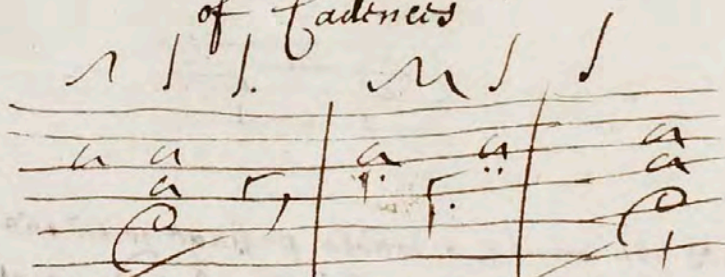 of Cadences
a a a a a
a a